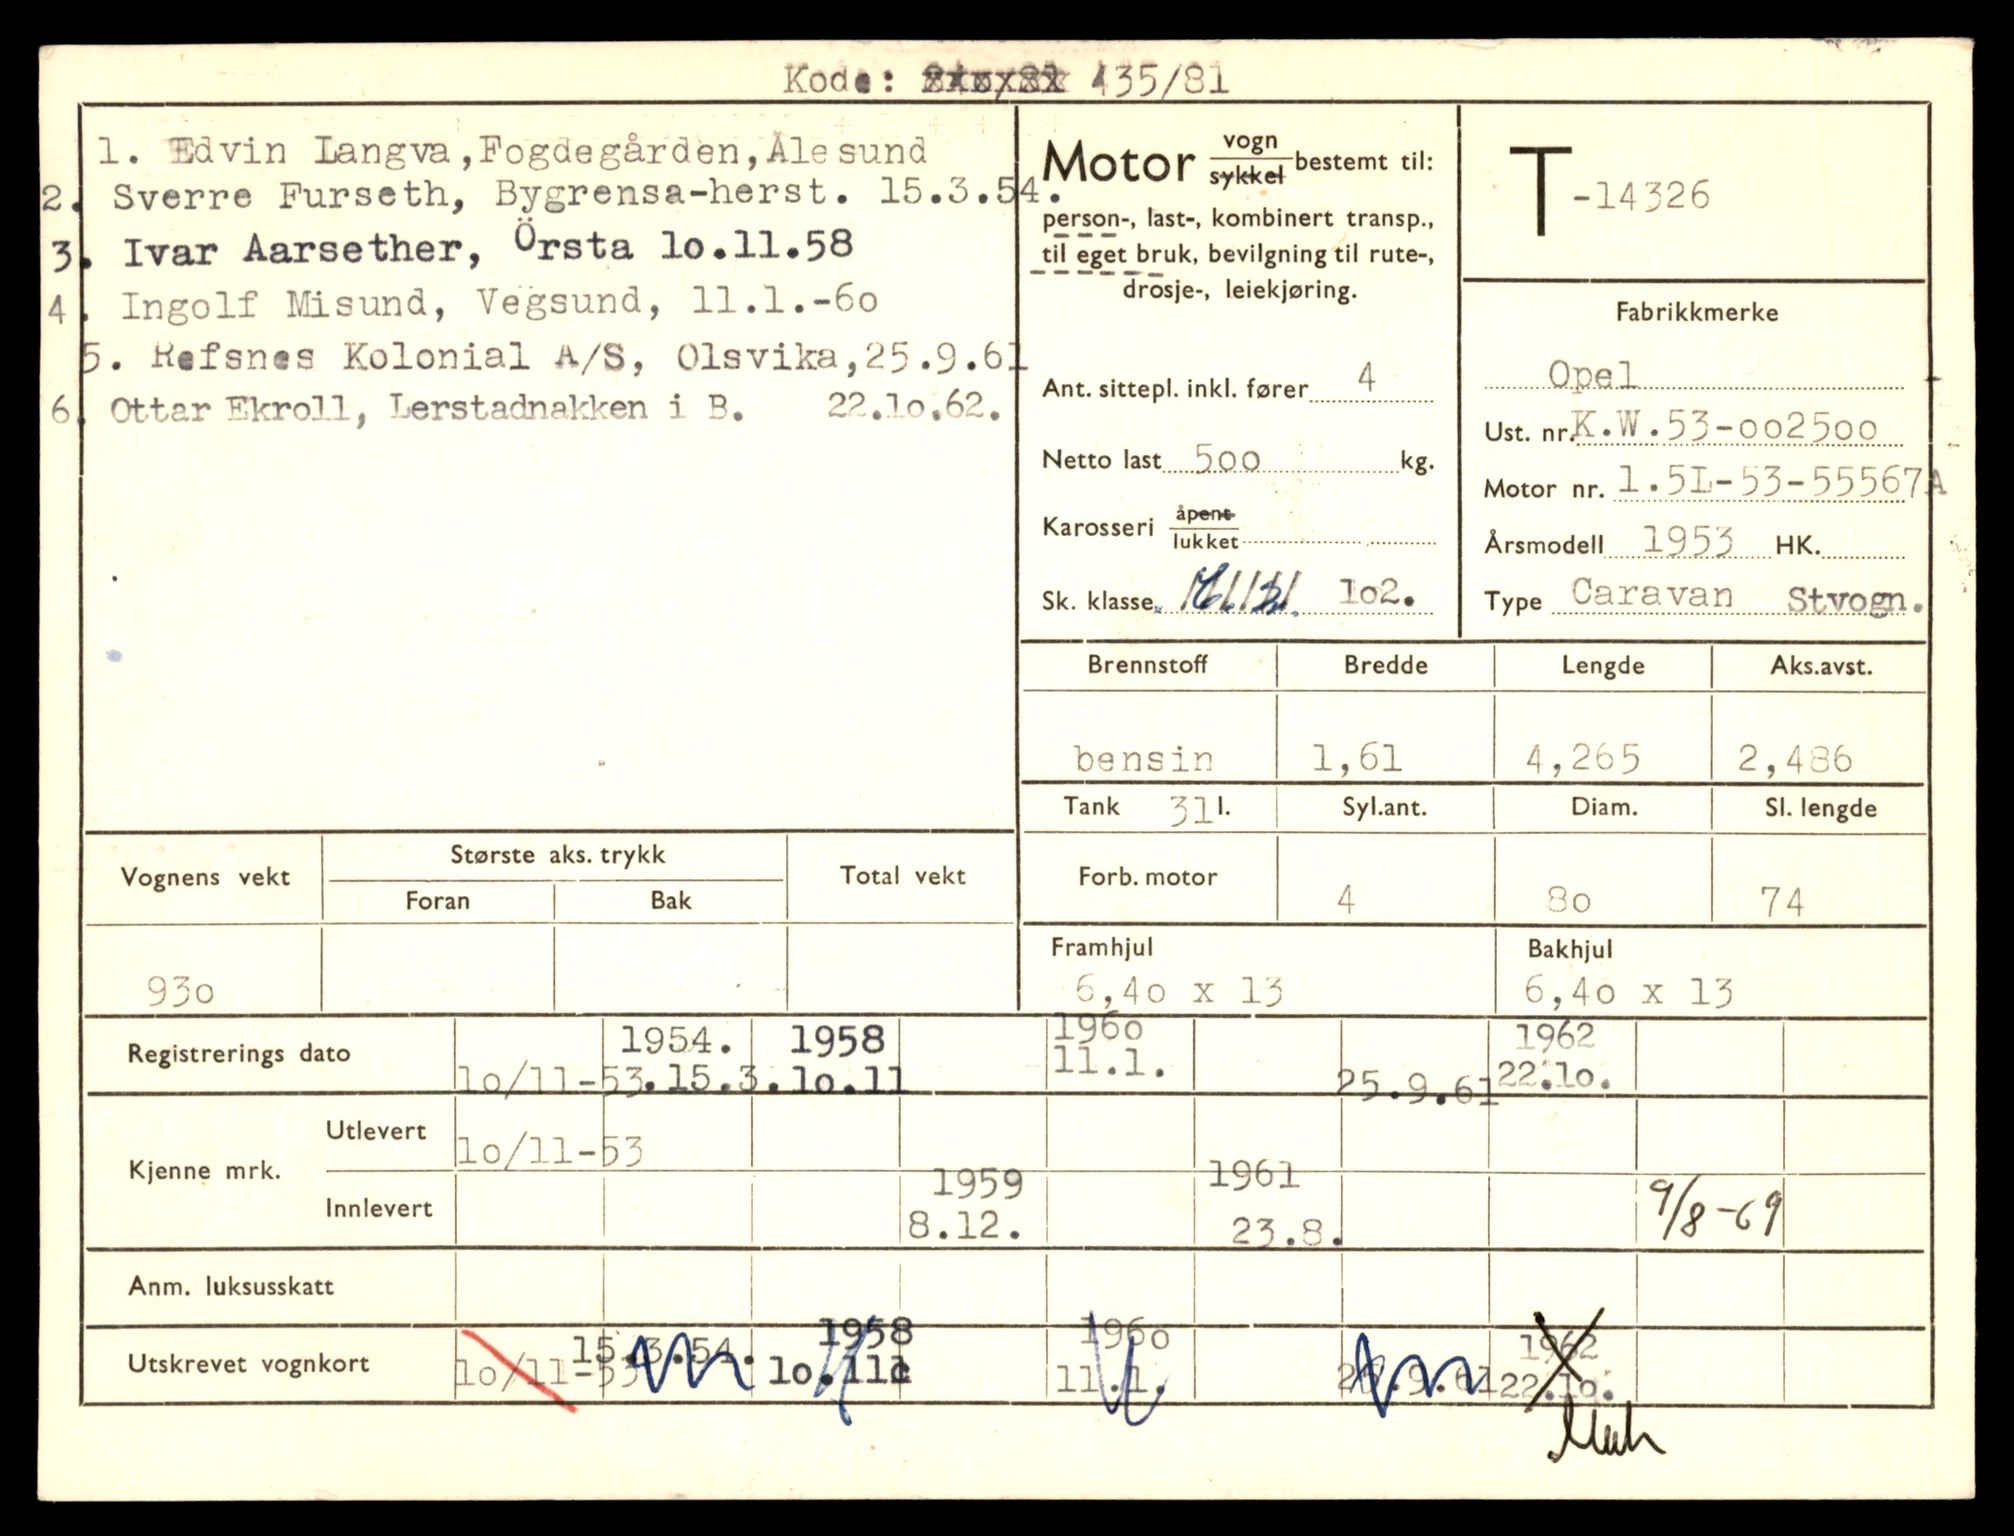 Kode: 435/81
1. Edvin Langva,Fogdegården,Ålesund
2. Sverre Furseth, Bygrensa-herst. 15.3.54.
3. Ivar Aarsether, Örsta lo.ll.58
4. Ingolf Misund, Vegsund, ll.l.-6o
5. Refsnes Kolonial A/S, Olsvika,25.9.61
6. Ottar Ekroll, Lerstadnakken i B. 22.lo.62.
Motor vogn sykkel bestemt til:
person-, last-, kombinert transp.,
til eget bruk, bevilgning til rute-,
drosje-, leiekjøring.
Ant. sittepl. inkl. fører 4
Netto last 5oo kg.
Karosseri åpent lukket
Sk. klasse lo2.
T-14326
Fabrikkmerke
Opel
Ust. nr. K.W.53-oo25oo
Motor nr. 1.5L-53-55567A
Årsmodell 1953 HK.
Type Caravan Stvogn.
Brennstoff Bredde Lengde Aks.avst.
bensin 1,61 4,265 2,486
Tank 31 l. Syl.ant. Diam. Sl. lengde
Forb. motor 4 8o 74
Framhjul Bakhjul
6,4o x 13 6,4o x 13
Vognens vekt Største aks. trykk Total vekt
Foran Bak
93o
Registrerings dato 1954. 1958 196o 1962
lo/ll-53. 15.3. lo.ll ll.l. 25.9.61 22.lo.
Kjenne mrk.
Utlevert lo/ll-53
1959 1961
Innlevert 8.12. 23.8. 9/8-69
Anm. luksusskatt
Utskrevet vognkort 15.3.54. 1958 196o 1962
lo/ll-53 lo.ll ll.l. 25.9.61 22.lo.